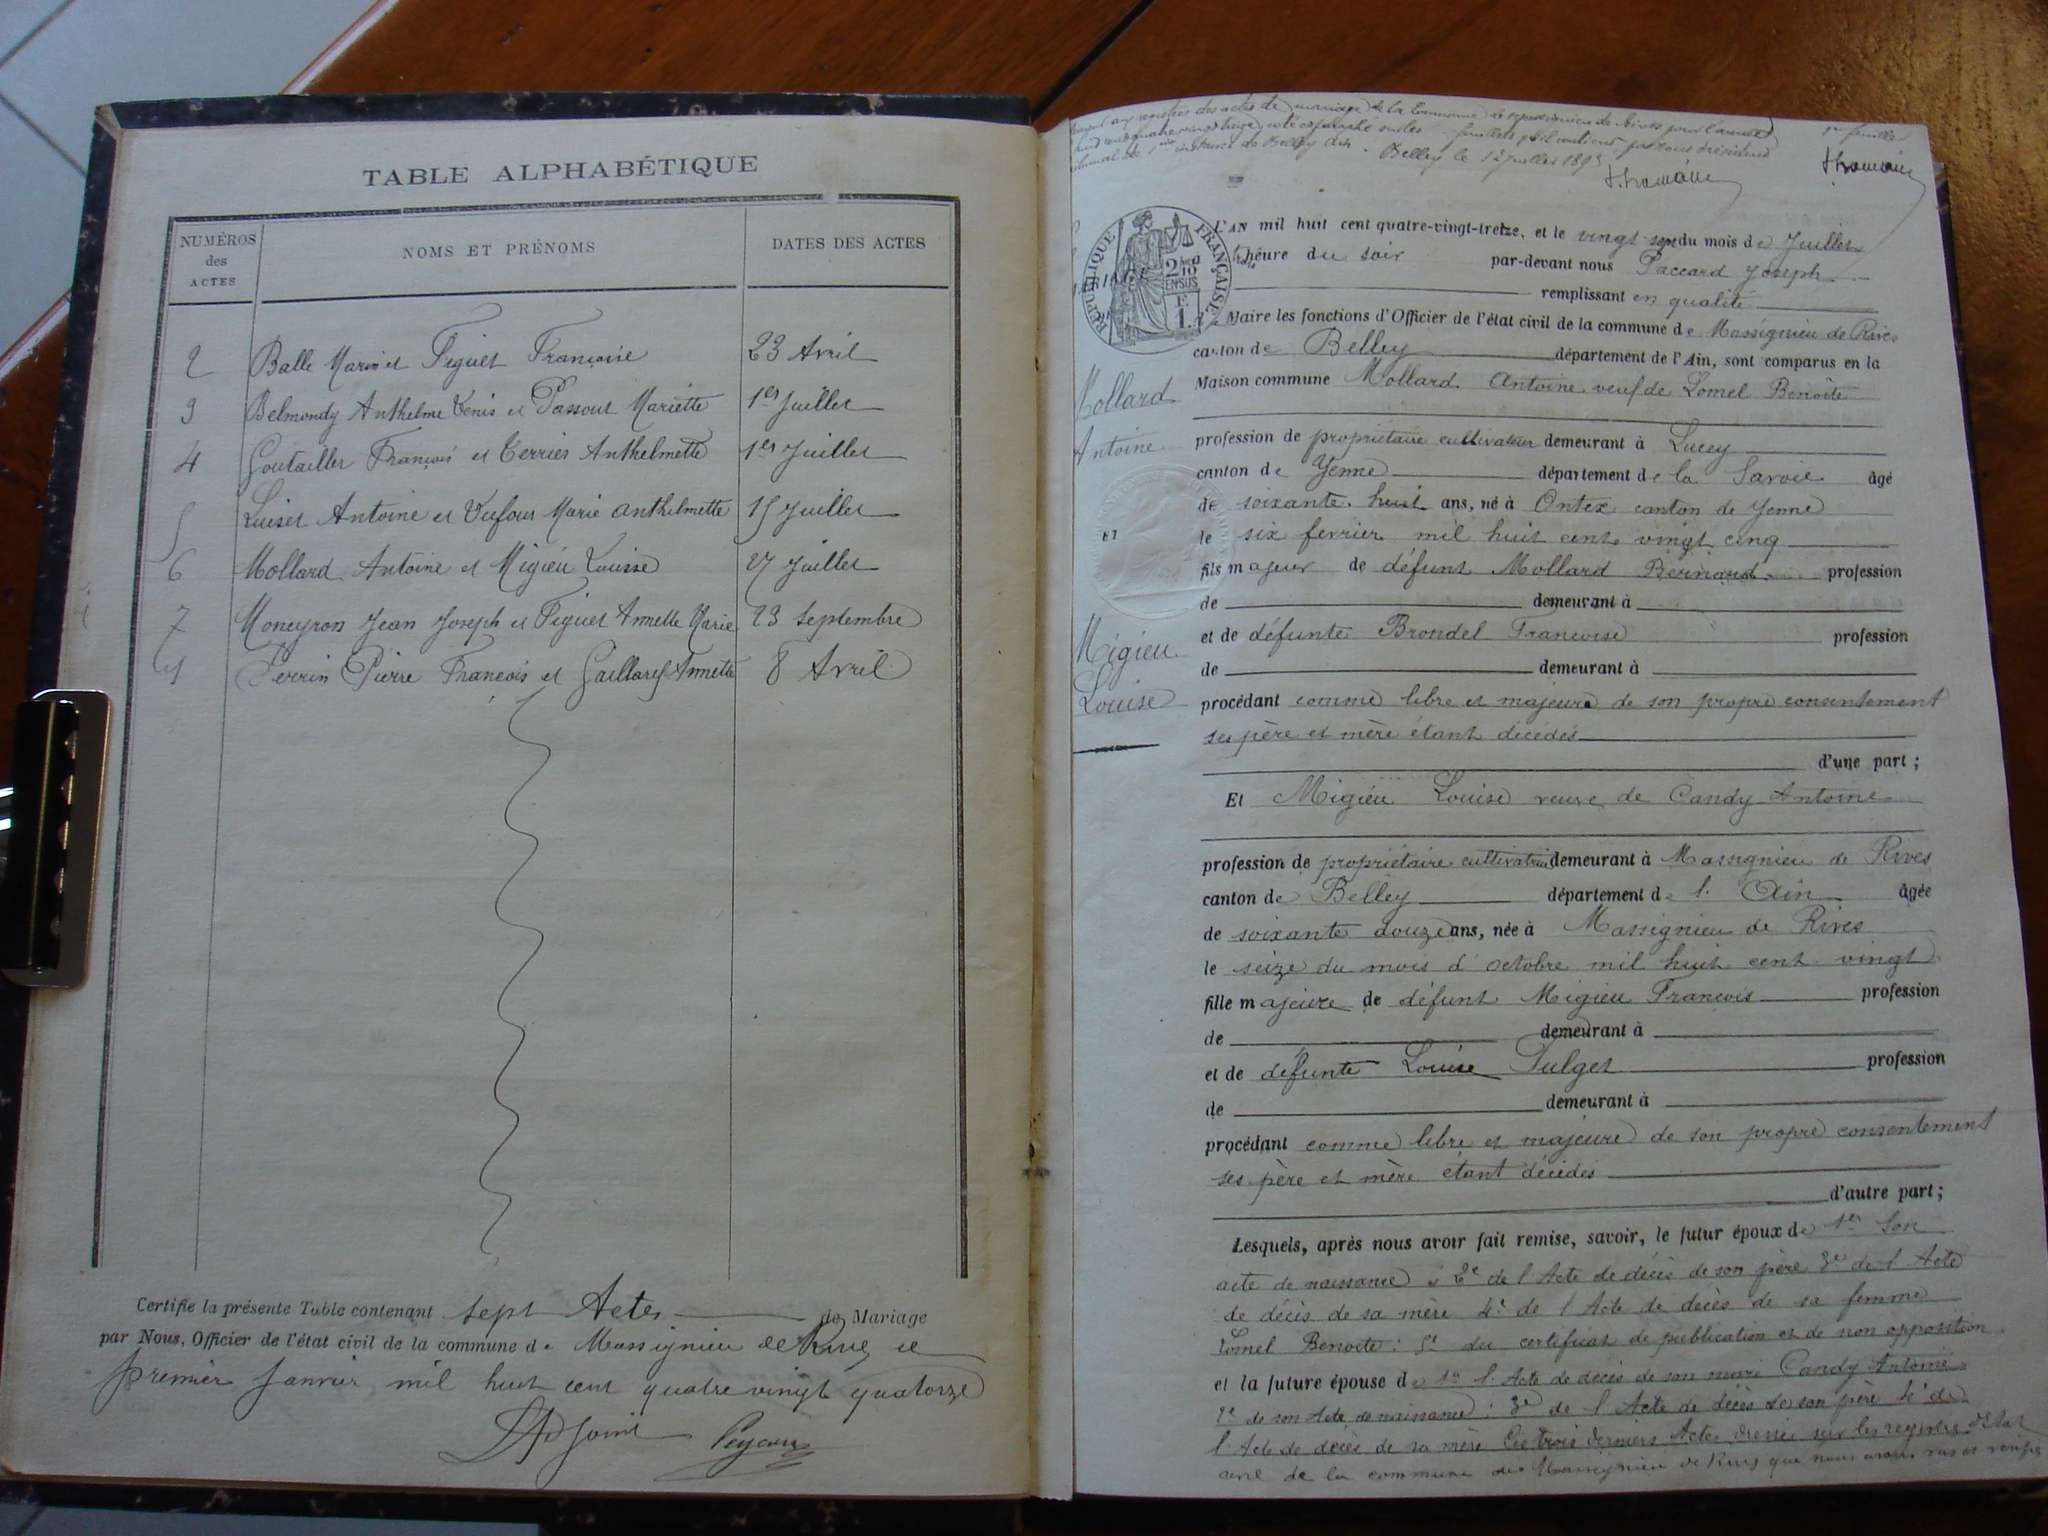 TABLE ALPHABÉTIQUE
NUMÉROS des ACTES
NOMS ET PRÉNOMS
DATES DES ACTES
2 Balle Marin et Figuet Françoise 23 Avril
3 Belmondy Anthelme Denis et Passout Mariette 1er Juillet
4 Goutailler François et Terrier Anthelmette 1er Juillet
5 Luiset Antoine et Dufour Marie anthelmette 15 Juillet
6 Mollard Antoine et Migieu Louise 27 Juillet
7 Moneyron Jean Joseph et Figuet Annette Marie 23 Septembre
1 Perrin Pierre François et Gaillard Annette 8 Avril
Certifie la présente Table contenant sept Actes de Mariage
par Nous, Officier de l'état civil de la commune de Massignieu de Rives le
premier Janvier mil huit cent quatre vingt quatorze
L'Adjoint
aux registres des actes de mariage de la Commune de Massignieu de Rives pour l'année
feuillets
Belley le 12 Juillet 1893
RÉPUBLIQUE FRANÇAISE
2/10 EN SUS
L'AN mil huit cent quatre-vingt-treize, et le vingt sept du mois de Juillet
heure du soir par-devant nous Paccard Joseph
remplissant en qualité
de Maire les fonctions d'Officier de l'état civil de la commune de Massignieu de Rives
canton de Belley département de l'Ain, sont comparus en la
Maison commune Mollard Antoine veuf de Lomel Benoîte
Mollard
Antoine
profession de propriétaire cultivateur demeurant à Lucey
canton de Yenne département de la Savoie âgé
de soixante huit ans, né à Ontex canton de Yenne
ET
le six fevrier mil huit cent vingt cinq
fils majeur de défunt Mollard Bernard profession
de demeurant à
et de défunte Brondel Francoise profession
Migieu
Louise
de demeurant à
procédant comme libre et majeure de son propre consentement
ses père et mère étant décédés
d'une part ;
Et Migieu Louise veuve de Candy Antoine
profession de propriétaire cultivatrice demeurant à Massignieu de Rives
canton de Belley département de l'Ain âgée
de soixante douze ans, née à Massignieu de Rives
le seize du mois d'octobre mil huit cent vingt
fille majeure de défunt Migieu Francois profession
de demeurant à
et de défunte Louise Pulget profession
de demeurant à
procédant comme libre et majeure de son propre consentement
ses père et mère étant décédés
d'autre part ;
Lesquels, après nous avoir fait remise, savoir, le futur époux de 1er Son
acte de naissance ; 2e de l'Acte de décès de son père 3e de l'Acte
de décès de sa mère 4e de l'Acte de décès de sa femme
Lomel Benoite : 5e du certificat de publication et de non opposition
et la future épouse de 1er l'Acte de décès de son mari Candy Antoine
2e de son Acte de naissance : 3e de l'Acte de décès de son père 4e de
l'Acte de décès de sa mère Les trois derniers Actes dressés sur les registres d'état
civil de la commune de Massignieu de Rives que nous avons vus et vérifiés